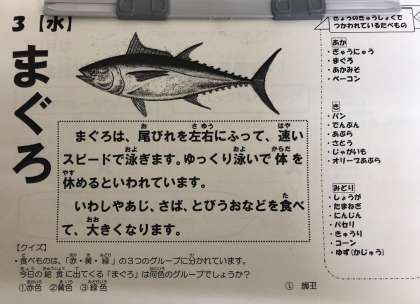 3【水】
まぐろ
まぐろは、尾びれを左右にふって、速い
スピードで泳ぎます。ゆっくり泳いで体を
休めるといわれています。
いわしやあじ、さば、とびうおなどを食べ
て、大きくなります。
【クイズ】
・食べものは、「赤・黄・緑」の3つのグループに分かれています。
今日の給食に出てくる「まぐろ」は何色のグループでしょうか？
①赤色 ②黄色 ③緑色
きょうのきゅうしょくで
つかわれているたべもの
あか
・ぎゅうにゅう
・まぐろ
・あかみそ
・ベーコン
き
・パン
・でんぷん
・あぶら
・さとう
・じゃがいも
・オリーブあぶら
みどり
・しょうが
・たまねぎ
・にんじん
・パセリ
・きゅうり
・コーン
・ゆず(かじゅう)